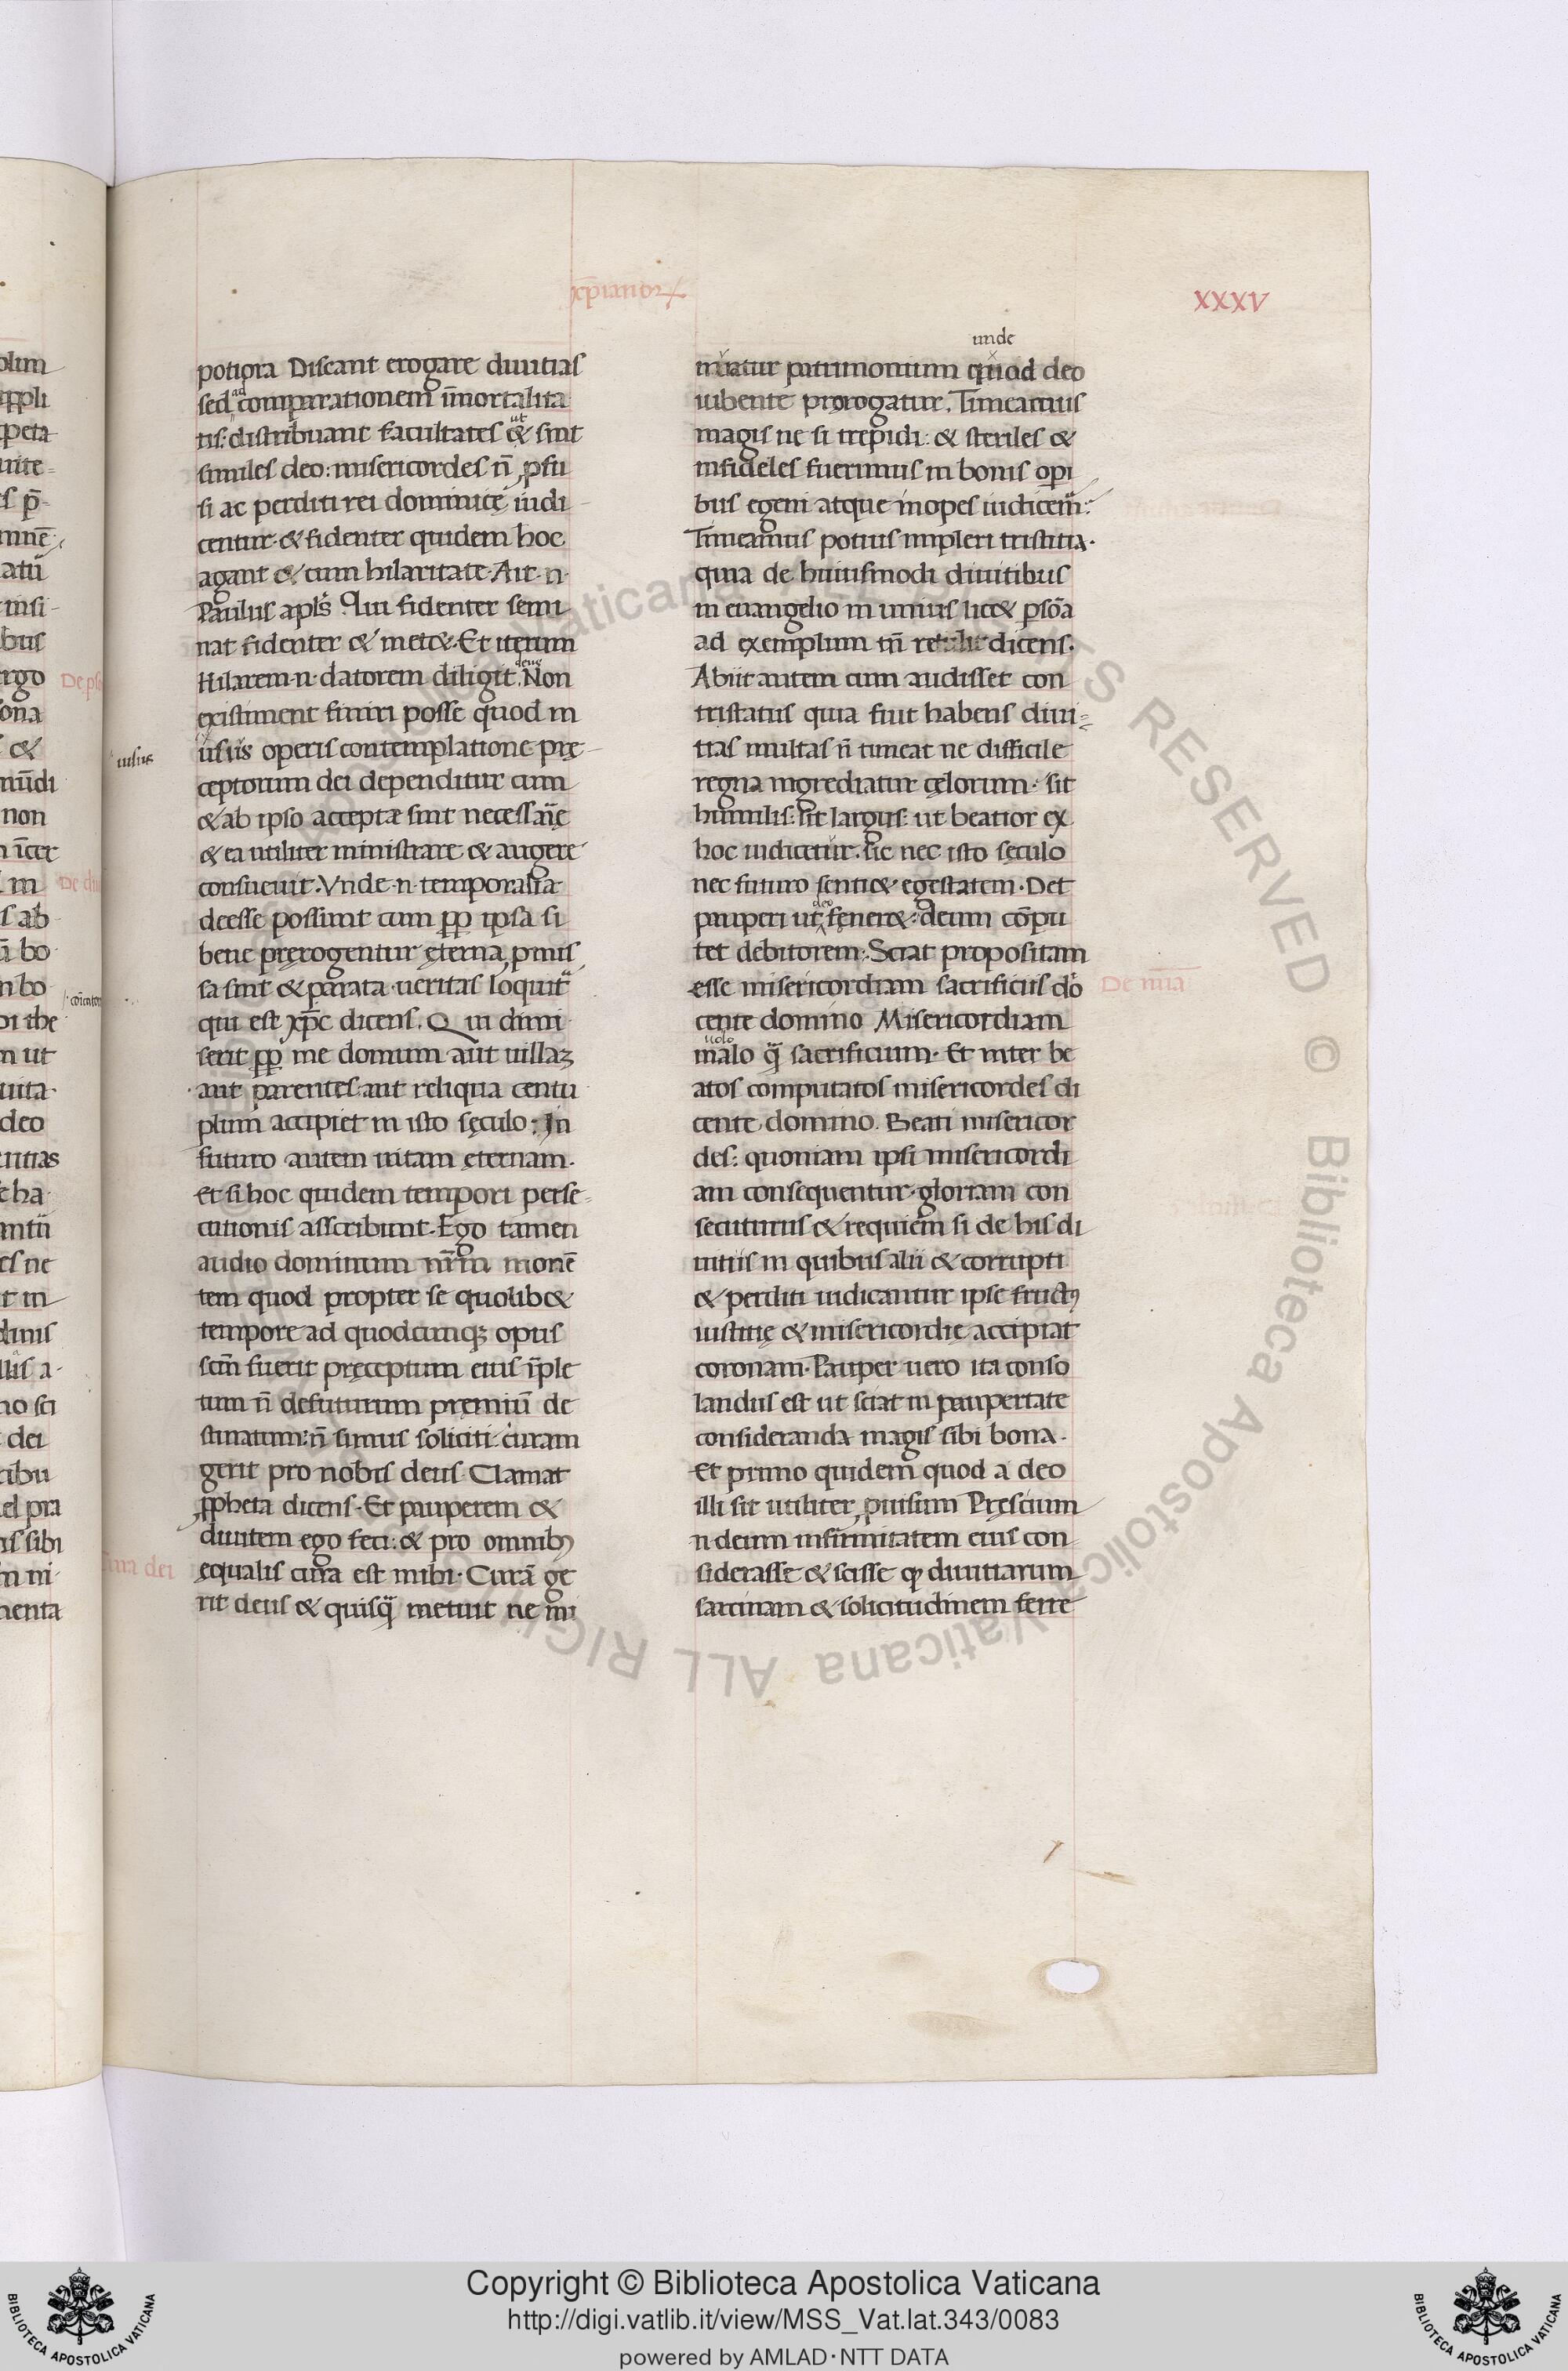 xp̄ianorꝝ
XXXV
potiora Discant erogare diuitias
sed ad comparationem īmortalita
tis: distribuant facultates ut & sint
similes deo: misericordes n̄ ꝓfu
si ac perditi rei dominicę iudi
centur. & fidenter quidem hoc
agant & cum hilaritate. Ait .n.
Paulus apl's Qui fidenter semi
nat fidenter & met&. Et iterum
Hilarem .n. datorem diligit deus. Non
existiment finiri posse quod in
usus operis contemplatione prę
ceptorum dei dependitur cum
& ab ipso acceptæ sint necessarię
& ea utiliter ministrare & augere
consueuit. Vnde .n. temporalia
deesse possunt cum ꝓp̄ ipsa si
bene pręrogentur ęterna ꝓmis
sa sint & parata ueritas loquit᷑
qui est xp̄c dicens. Qui dimi
serit ꝓp̄ me domum aut uillaꝫ
aut parentes aut reliqua centu
plum accipiet in isto sęculo: In
futuro autem uitam ęternam.
Et si hoc quidem tempori perse
cutionis asscribunt. Ego tamen
audio dominum nr̄m monē
tem quod propter se quolib&
tempore ad quodcunqꝫ opus
scm̄ fuerit pręceptum eius īple
tum n̄ defuturum premiū de
stinatum: n̄ simus soliciti. curam
gerit pro nobis deus Clamat
ꝓpheta dicens. Et pauperem &
diuitem ego feci: & pro omnibꝰ
ęqualis cura est mihi. Curā ge
rit deus & quisq̄ metuit ne mi
usus
cura dei
unde
nuatur patrimonium quod deo
iubente prorogatur. Timeamus
magis ne si trepidi: & steriles &
infideles fuerimus in bonis operi
bus egeni atque inopes iudicem᷑:
Timeamus potius impleri tristitia.
quia de huiusmodi diuitibus
in euangelio in unius lic& ꝑsōa
ad exemplum tn̄ retulit dicens.
Abiit autem cum audisset con
tristatus quia fuit habens diui
tias multas n̄ timeat ne difficile
regna ingrediatur cęlorum: sit
humilis: sit largus: ut beatior ex
hoc iudicetur. sic nec isto sęculo
nec futuro senti& egestatem. Det
pauperi ut deo fener&: deum cōpu
tet debitorem: Sciat propositam
esse misericordiam sacrificiis dō
cente domino Misericordiam
uolo
malo q̄ sacrificium. Et inter be
atos computatos misericordes di
cente domino. Beati misericor
des: quoniam ipsi misericordi
am consequentur. gloriam con
secuturus & requiem si de his di
uitiis in quibus alii & corrupti
& perditi iudicantur ipse fructꝰ
iustitię & misericordię accipiat
coronam. Pauper uero ita conso
landus est ut sciat in paupertate
consideranda magis sibi bona.
Et primo quidem quod a deo
illi sit utiliter ꝓuisum Pręscium
.n. deum infirmitatem eius con
siderasse & scisse ꝙ diuitiarum
sarcinam & solicitudinem ferre
De mīa
Copyright © Biblioteca Apostolica Vaticana
http://digi.vatlib.it/view/MSS_Vat.lat.343/0083
powered by AMLAD·NTT DATA